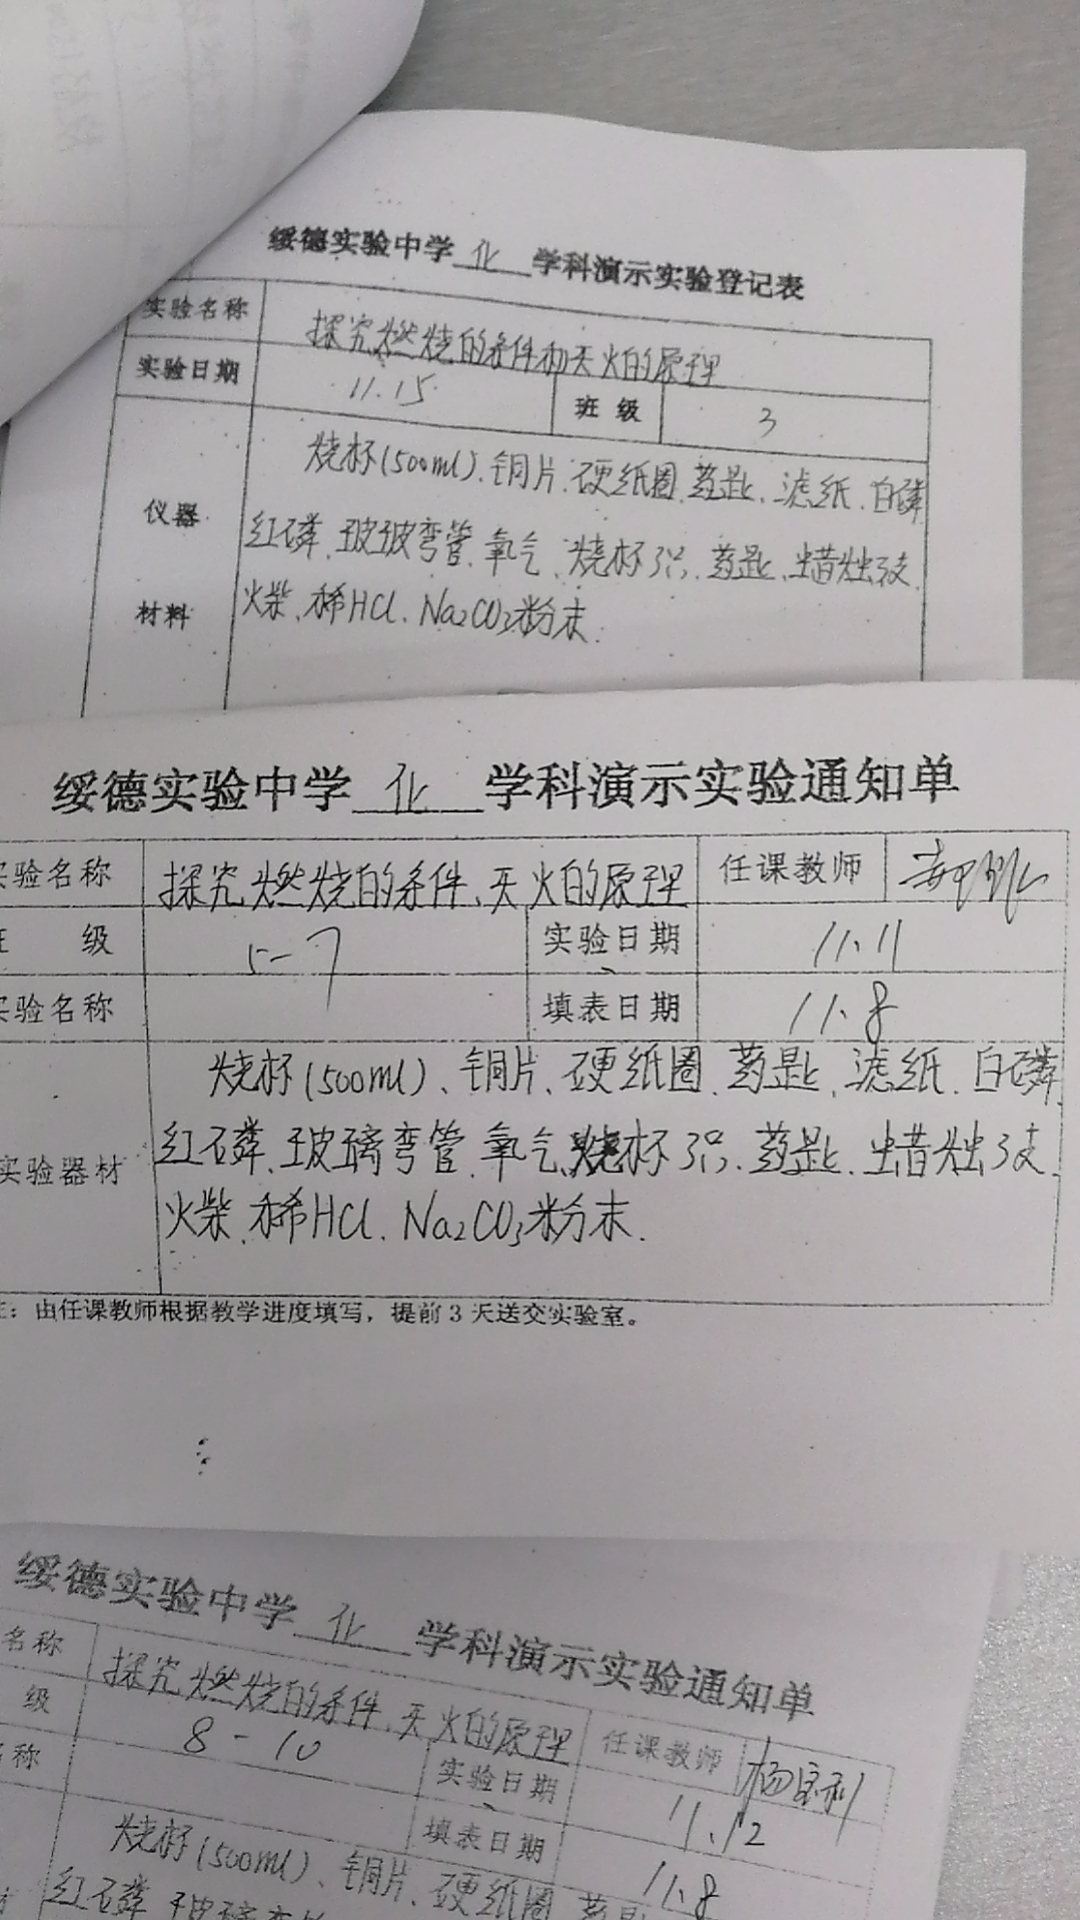 绥德实验中学 化 学科演示实验登记表
实验名称 探究燃烧的条件和灭火的原理
实验日期 11.15 班级 3
仪器 材料
烧杯(500ml)、铜片、硬纸圈、药匙、滤纸、白磷
红磷、玻玻弯管、氧气、烧杯3只、药匙、蜡烛3支
火柴、稀HCl、Na2CO3粉末.
绥德实验中学 化 学科演示实验通知单
实验名称 探究燃烧的条件、灭火的原理 任课教师
级 5-7 实验日期 11.11
实验名称 填表日期 11.8
实验器材
烧杯(500ml)、铜片、硬纸圈、药匙、滤纸、白磷
红磷、玻璃弯管、氧气、烧杯3只、药匙、蜡烛3支
火柴、稀HCl、Na2CO3粉末.
注：由任课教师根据教学进度填写，提前3天送交实验室。
绥德实验中学 化 学科演示实验通知单
名称 探究燃烧的条件、灭火的原理 任课教师
级 8-10 实验日期 11.12
称 填表日期 11.8
烧杯(500ml)、铜片、硬纸圈、药匙
红磷、玻璃弯管